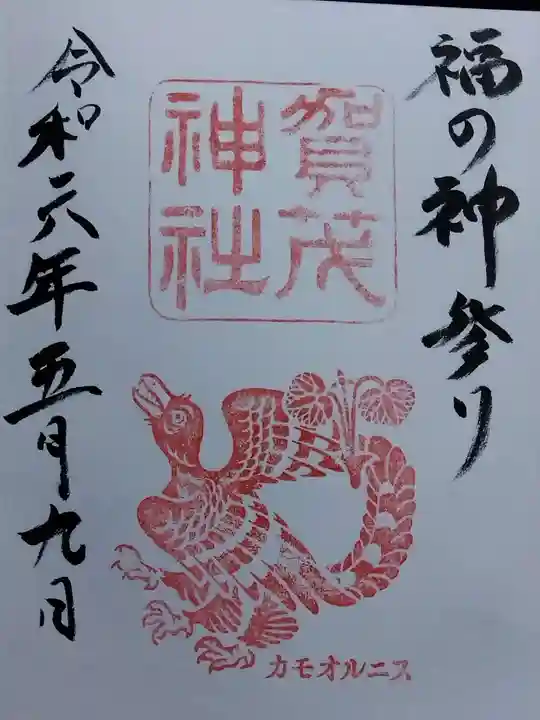 福の神参り
賀茂
神社
カモオルニス
令和六年五月九日